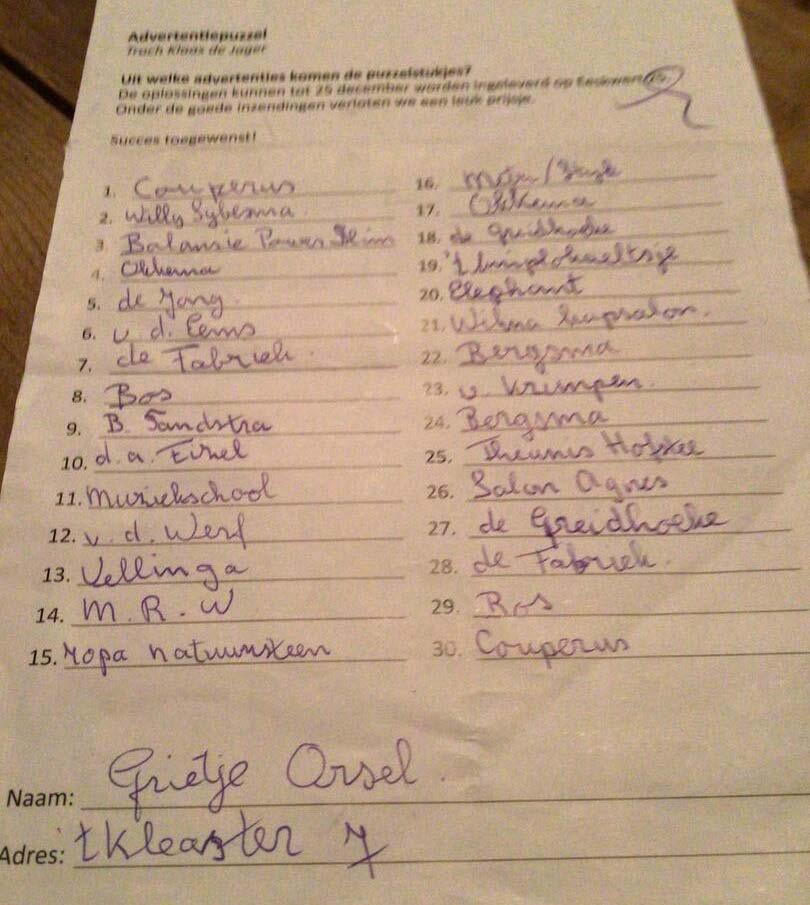 Advertentiepuzzel
Troch Klaas de Jager
Uit welke advertenties komen de puzzelstukjes?
De oplossingen kunnen tot 25 december worden ingeleverd op
Onder de goede inzendingen verloten we een leuk prijsje.
Succes toegewenst!
1. Couperus
2. Willy Sybesma
3. Balansie Power Slim
4. Okkema
5. de Jong
6. v. d. Eems
7. de Fabriek.
8. Bos
9. B. Sandstra
10. d.a. Eizel
11. Muziekschool
12. v. d. Werf
13. Vellinga
14. M.R.W
15. Yopa natuursteen
16.
17. Okkema
18. de Greidhoeke
19. 't
20. Eleghant
21. Wilma kapsalon.
22. Bergsma
23. v. Krimpen.
24. Bergsma
25. Theunis
26. Salon Agnes
27. de Greidhoeke
28. de Fabriek.
29. Ros
30. Couperus
Naam: Grietje Orsel.
Adres: 't Kleaster 7